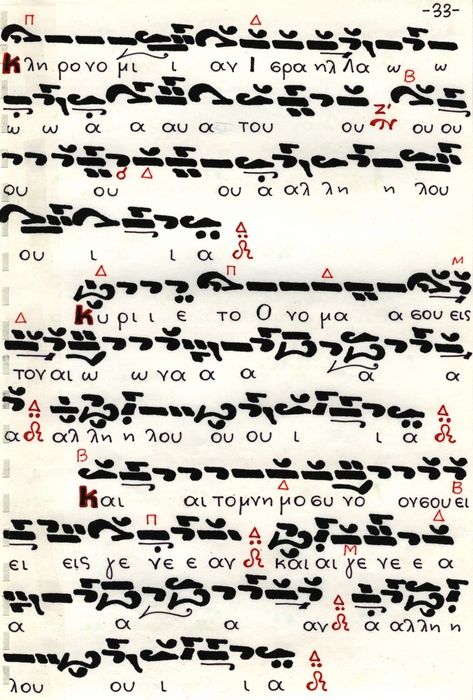 -33-
Κληρονομι ι αν Ισραηλ Λα ω ω
ω ω α α αυ α του ου ου ου
ου ου ου α αλ λη η λου
ου ι ι α
Κυρι ι ε το Ο νο μα α σου εις
τον αι ω ω να α α α α
α αλ λη η λου ου ου ι ι α
Και αι το μνη μο συ νο ον σου ει
ει εις γε νε ε αν και αι γε νε ε α
α α α αν α αλλη η
λου ου ι ι α